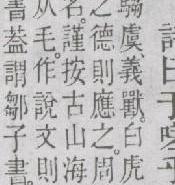 騶虞義獸白虎
之德則應之周
名謹按古山海
从毛作說文則
書蓋謂鄒子書